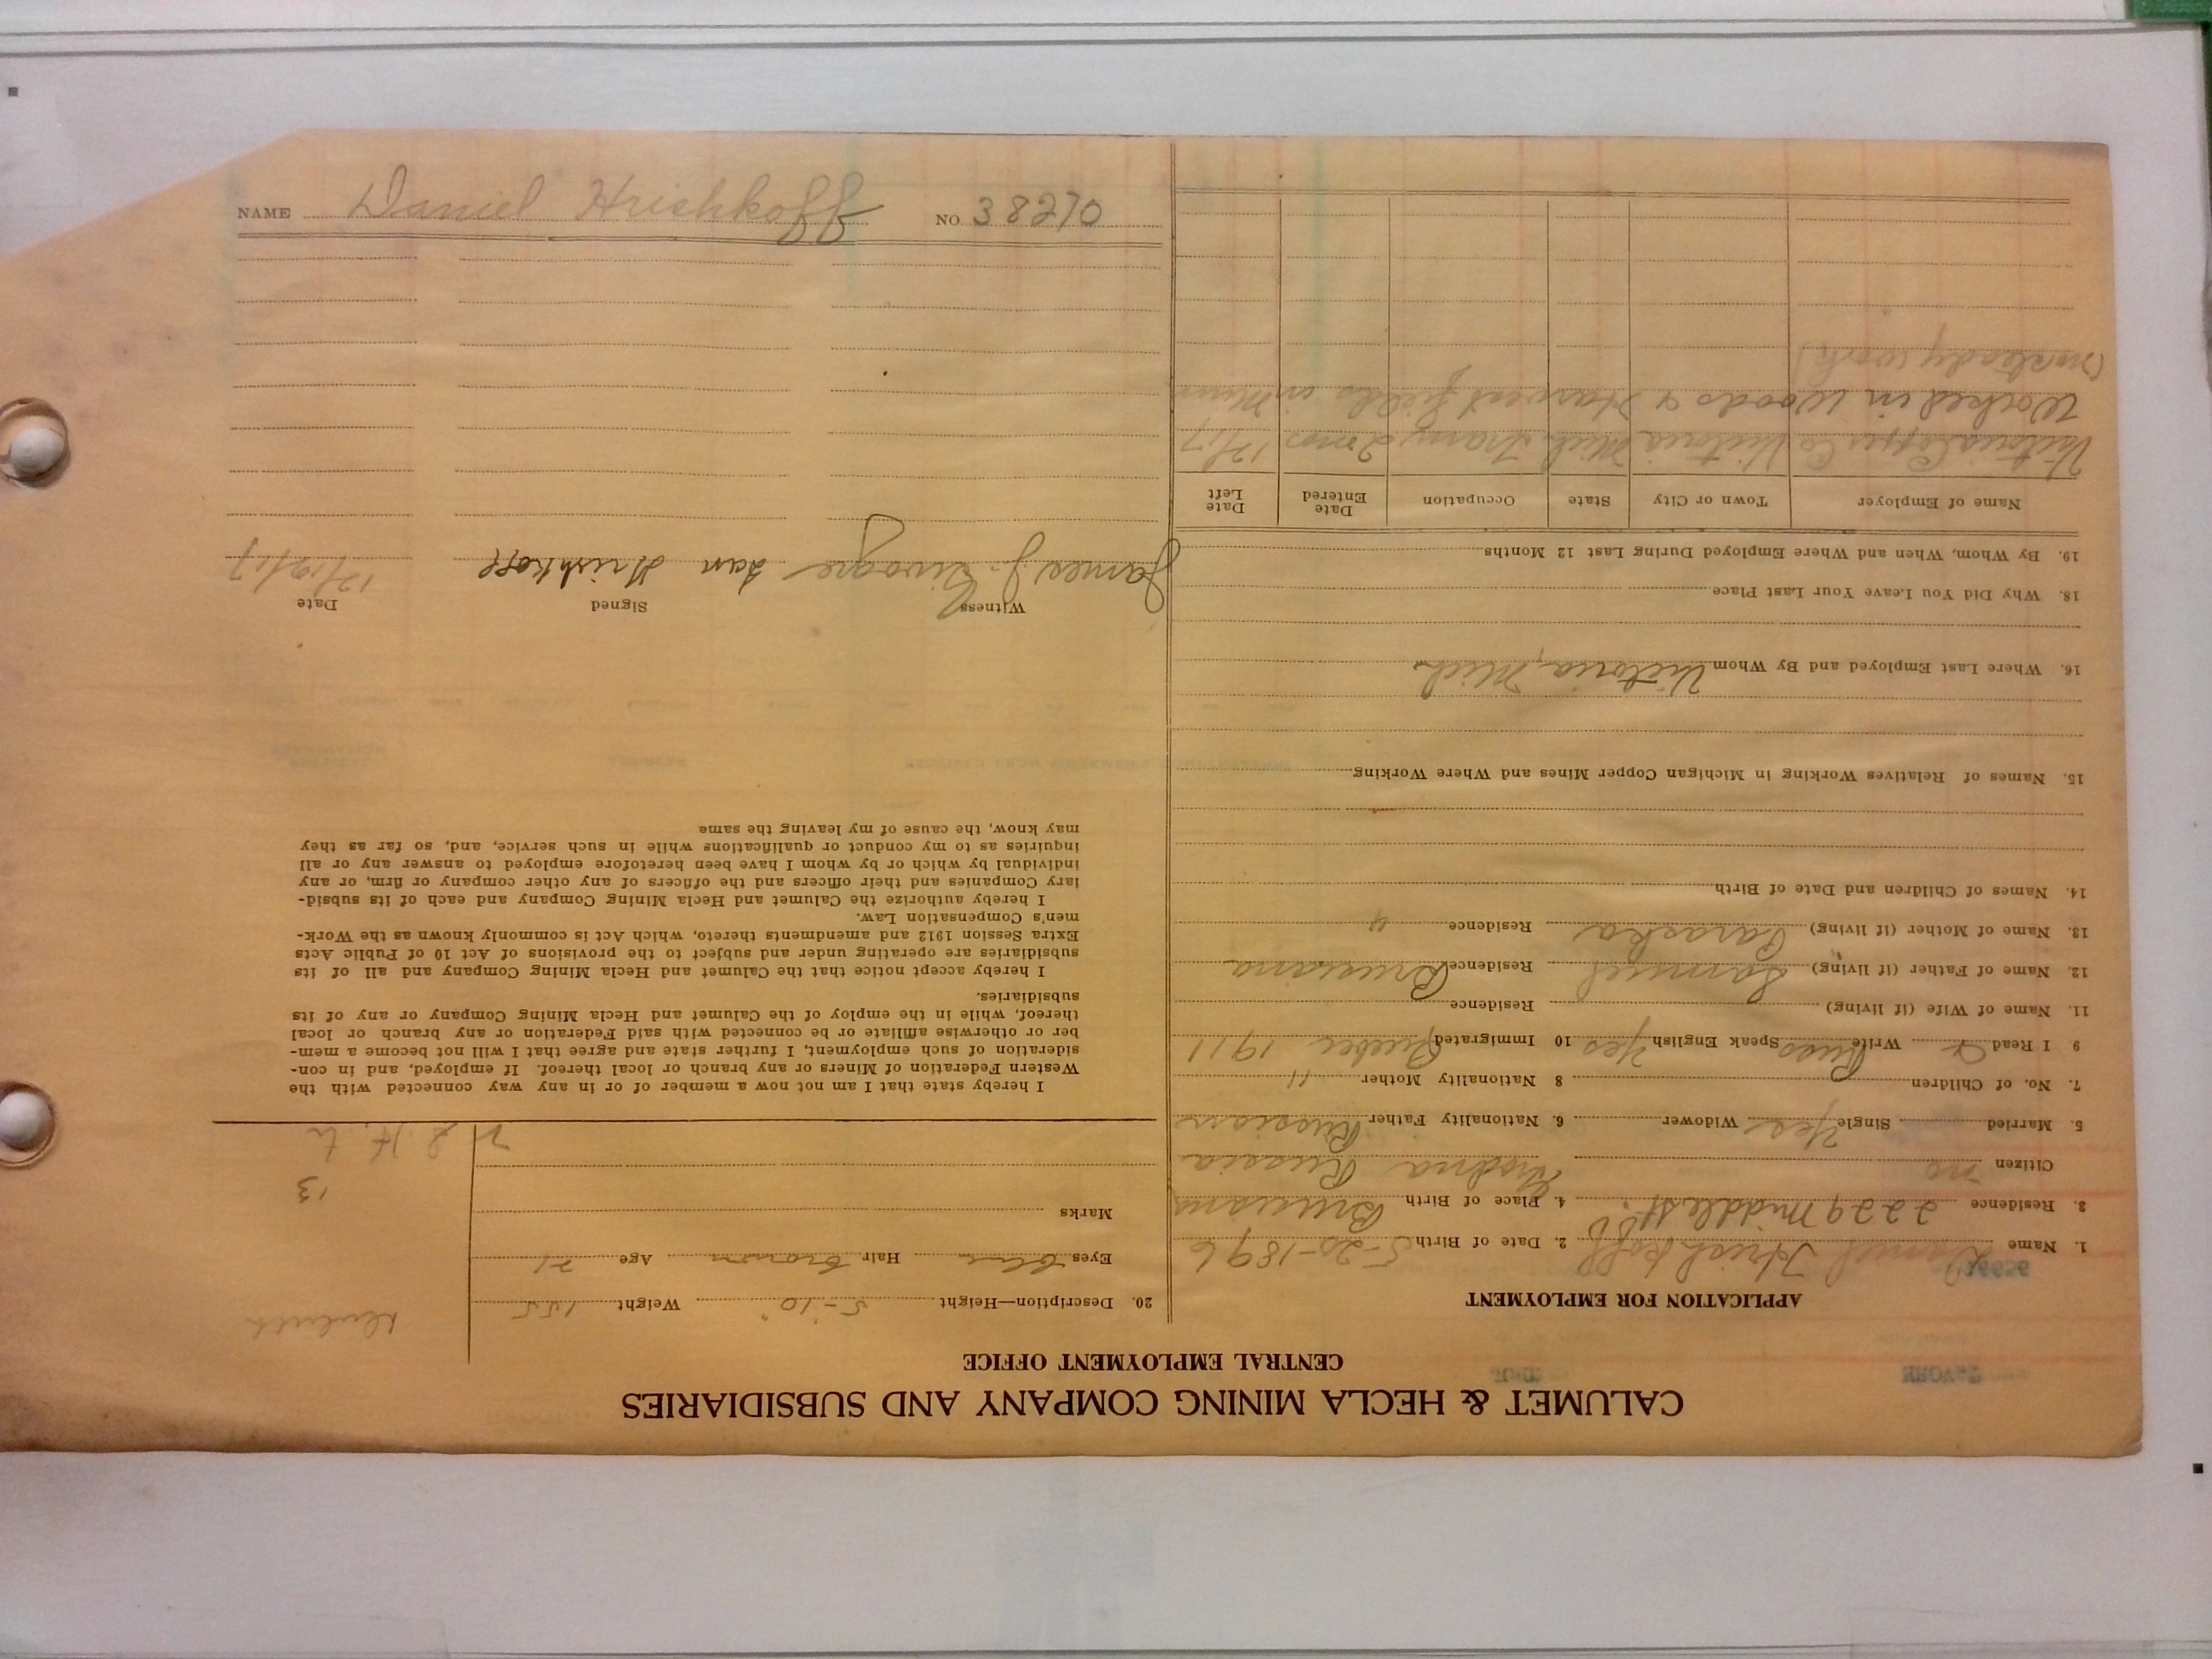 CALUMET & HECLA MINING COMPANY AND SUBSIDIARIES
CENTRAL EMPLOYMENT OFFICE
APPLICATION FOR EMPLOYMENT
1. Name Daniel Hrishkoff 2. Date of Birth 5-20-1896
3. Residence 2229 Middle St. 4. Place of Birth
Citizen no Grodna Russia
5. Married Single Yes Widower 6. Nationality Father Russian
7. No. of Children 8 Nationality Mother "
9 I Read & Write Russ Speak English Yes 10 Immigrated Quebec 1911
11. Name of Wife (if living) Residence
12. Name of Father (if living) Samuel Residence
13. Name of Mother (if living) Paraska Residence "
14. Names of Children and Date of Birth
15. Names of Relatives Working in Michigan Copper Mines and Where Working
16. Where Last Employed and By Whom Victoria, Mich
18. Why Did You Leave Your Last Place
19. By Whom, When and Where Employed During Last 12 Months
Name of Employer Town or City State Occupation Date Entered Date Left
Victoria Copper Co Victoria Mich Tramy 2 mos 12/17
Worked in Woods & Harvest fields in Minn
(no steady work)
20. Description—Height 5-10" Weight 155
Eyes Blue Hair Brown Age 21
Marks
13
I hereby state that I am not now a member of or in any way connected with the
Western Federation of Miners or any branch or local thereof. If employed, and in con-
sideration of such employment, I further state and agree that I will not become a mem-
ber or otherwise affiliate or be connected with said Federation or any branch or local
thereof, while in the employ of the Calumet and Hecla Mining Company or any of its
subsidiaries.
I hereby accept notice that the Calumet and Hecla Mining Company and all of its
subsidiaries are operating under and subject to the provisions of Act 10 of Public Acts
Extra Session 1912 and amendments thereto, which Act is commonly known as the Work-
men's Compensation Law.
I hereby authorize the Calumet and Hecla Mining Company and each of its subsid-
iary Companies and their officers and the officers of any other company or firm, or any
individual by which or by whom I have been heretofore employed to answer any or all
inquiries as to my conduct or qualifications while in such service, and, so far as they
may know, the cause of my leaving the same
Witness Signed Date
James J. Hrishkoff 12/19/17
NAME Daniel Hrishkoff NO. 38270